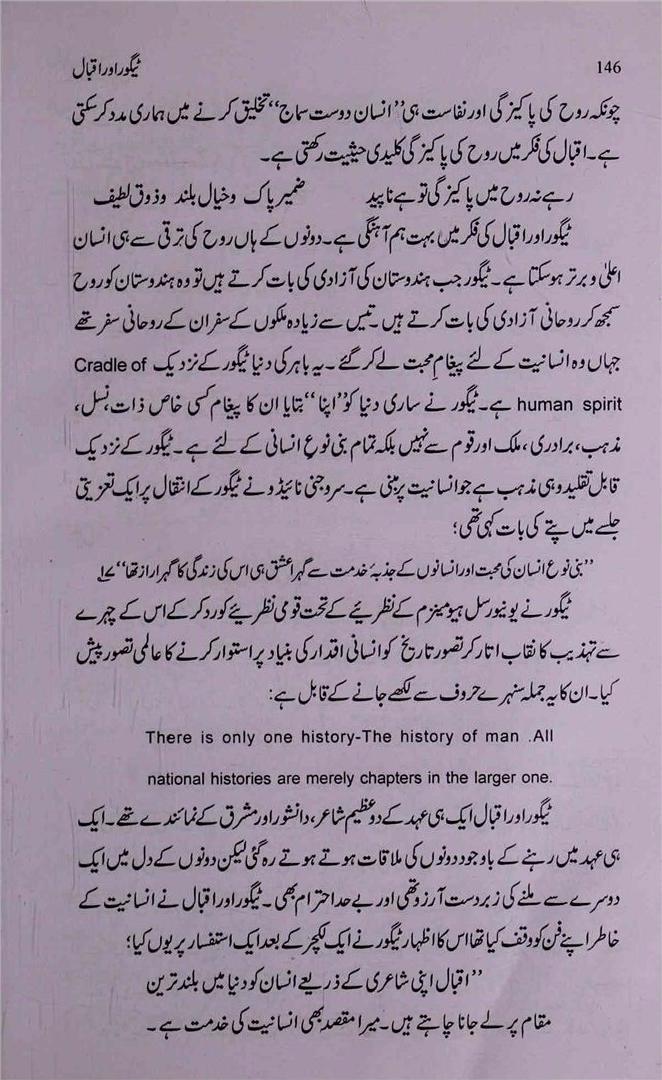 146
ٹیگور اور اقبال
چونکہ روح کی پاکیزگی اور نفاست ہی ’’انسان دوست سماج‘‘ تخلیق کرنے میں ہماری مدد کر سکتی
ہے۔ اقبال کی فکر میں روح کی پاکیزگی کلیدی حیثیت رکھتی ہے۔
رہے نہ روح میں پاکیزگی تو ہے ناپید ضمیر پاک و خیال بلند و ذوق لطیف
ٹیگور اور اقبال کی فکر میں بہت ہم آہنگی ہے۔ دونوں کے ہاں روح کی ترقی سے ہی انسان
اعلیٰ و برتر ہو سکتا ہے۔ ٹیگور جب ہندوستان کی آزادی کی بات کرتے ہیں تو وہ ہندوستان کو روح
سمجھ کر روحانی آزادی کی بات کرتے ہیں۔ تیس سے زیادہ ملکوں کے سفر ان کے روحانی سفر تھے
جہاں وہ انسانیت کے لئے پیغامِ محبت لے کر گئے۔ یہ باہر کی دنیا ٹیگور کے نزدیک Cradle of
human spirit ہے۔ ٹیگور نے ساری دنیا کو ’’اپنا‘‘ بتایا ان کا پیغام کسی خاص ذات، نسل،
مذہب، برادری، ملک اور قوم سے نہیں بلکہ تمام بنی نوعِ انسانی کے لئے ہے۔ ٹیگور کے نزدیک
قابل تقلید وہی مذہب ہے جو انسانیت پر مبنی ہے۔ سروجنی نائیڈو نے ٹیگور کے انتقال پر ایک تعزیتی
جلسے میں پتے کی بات کہی تھی؛
’’بنی نوع انسان کی محبت اور انسانوں کے جذبۂ خدمت سے گہرا عشق ہی اس کی زندگی کا گہرا راز تھا‘‘ ۱۷؎
ٹیگور نے یونیورسل ہیومینزم کے نظریئے کے تحت قومی نظریئے کو رد کر کے اس کے چہرے
سے تہذیب کا نقاب اتار کر تصور تاریخ کو انسانی اقدار کی بنیاد پر استوار کرنے کا عالمی تصور پیش
کیا۔ ان کا یہ جملہ سنہرے حروف سے لکھے جانے کے قابل ہے:
There is only one history-The history of man .All
national histories are merely chapters in the larger one.
ٹیگور اور اقبال ایک ہی عہد کے دو عظیم شاعر، دانشور اور مشرق کے نمائندے تھے۔ ایک
ہی عہد میں رہنے کے باوجود دونوں کی ملاقات ہوتے ہوتے رہ گئی لیکن دونوں کے دل میں ایک
دوسرے سے ملنے کی زبردست آرزو تھی اور بے حد احترام بھی۔ ٹیگور اور اقبال نے انسانیت کے
خاطر اپنے فن کو وقف کیا تھا اس کا اظہار ٹیگور نے ایک لکچر کے بعد ایک استفسار پر یوں کیا؛
’’اقبال اپنی شاعری کے ذریعے انسان کو دنیا میں بلند ترین
مقام پر لے جانا چاہتے ہیں۔ میرا مقصد بھی انسانیت کی خدمت ہے۔